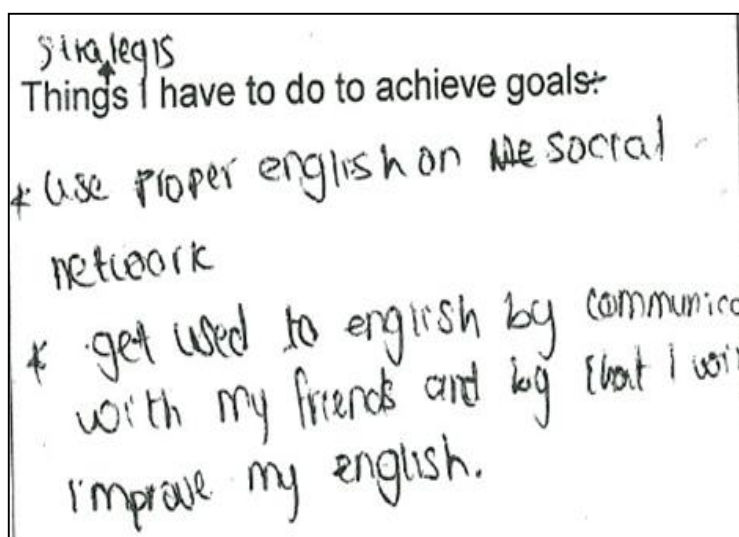 strategis
Things I have to do to achieve goals:
* use proper english on social
network
* get used to english by communica
with my friends and by that I wi
improve my english.